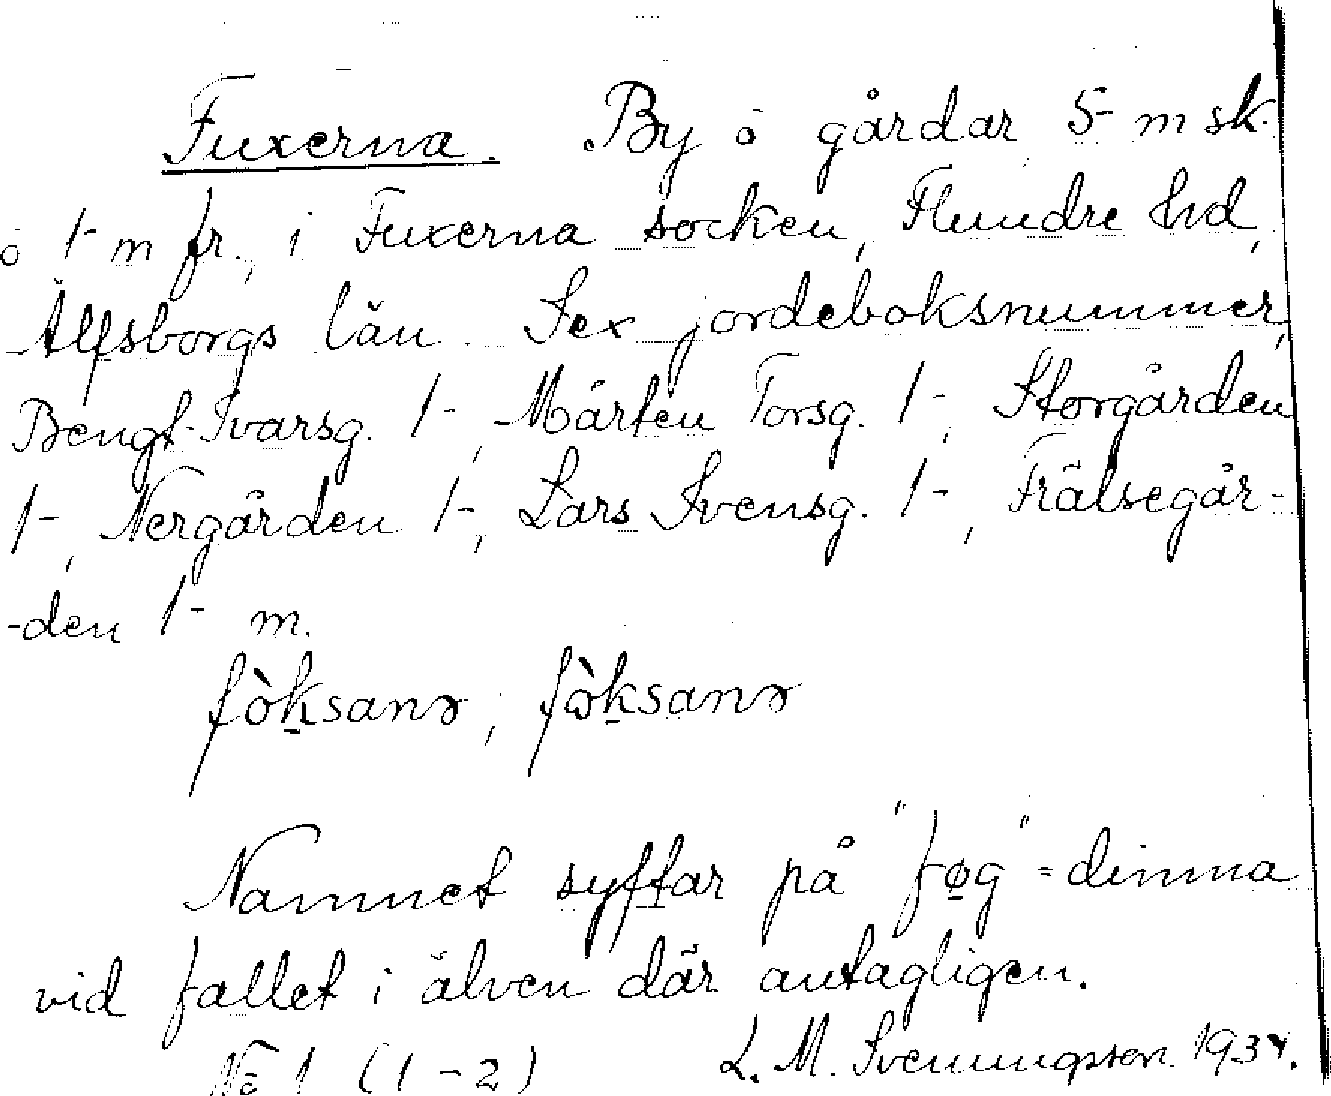 Fuxerna. By ö gårdar 5- m sk.
ö 1- m fr., i Fuxerna socken, Flundre hd,
Älfsborgs län. Sex jordeboksnummer,
Bengt Ivarsg. 1-, Mårten Torsg. 1-, Storgården
1-, Nergården 1-, Lars Svensg. 1-, Frälsegår-
-den 1- m.
Namnet syftar på "føg" = dimma
vid fallet i älven där antagligen.
No 1 (1-2) L. M. Svenungsson